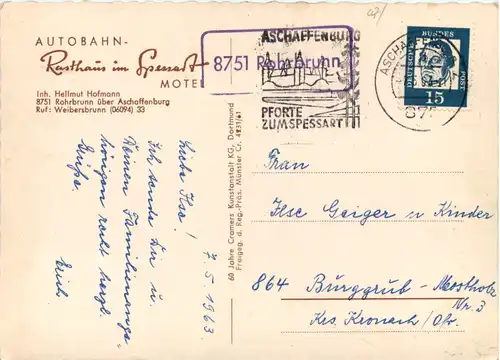 AUTOBAHN-
Rasthaus im Spessart
MOTEL
Inh. Hellmut Hofmann
8751 Rohrbrunn über Aschaffenburg
Ruf: Weibersbrunn (06094) 33
8751 Rohrbrunn
ASCHAFFENBURG
PFORTE
ZUM SPESSART
ASCHA
DEUTSCHE
BUNDES
POST
15
60 Jahre Cramers Kunstanstalt KG, Dortmund
Freigeg. d. Reg.-Präs. Münster Cr. 4231/61
7.5.1963
Liebe Ilse!
Ich sende Dir u.
Deinen Familienange-
hörigen recht herzl.
Grüße.
Erich.
Frau
Ilse Geiger u Kinder
864 Burggrub-Mostholz
Nr. 3
Krs. Kronach/Ofr.